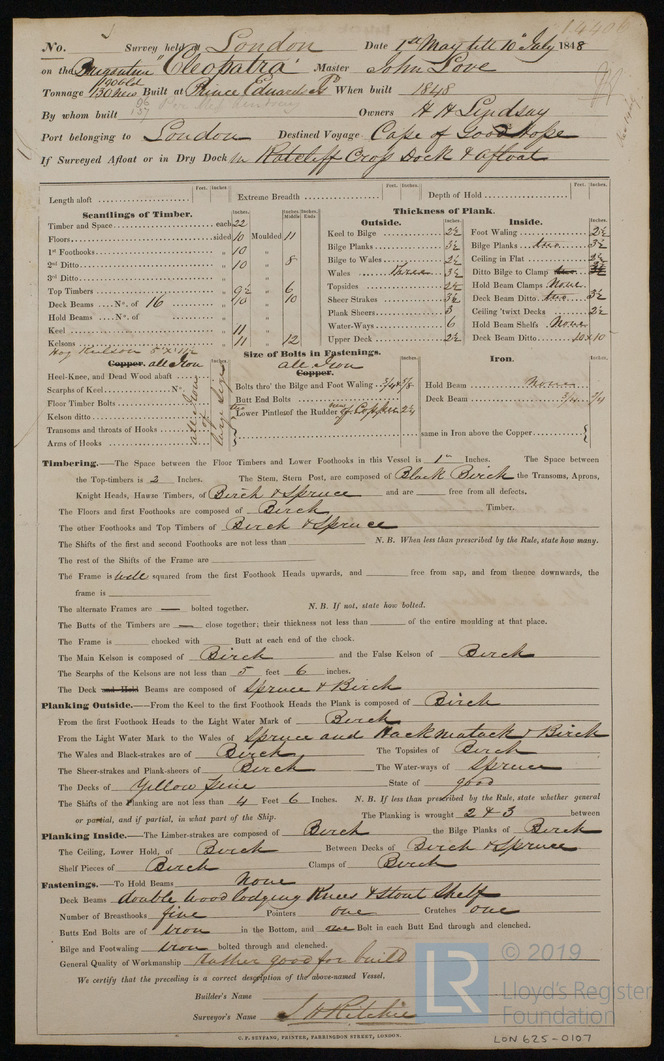 14406
No. Survey held at London Date 1st May till 10th July 1848
on the Brigantine "Cleopatra" Master John Love
Tonnage 130 New Built at Prince Edwards Id When built 1848
By whom built Owners H H Lindsay
Port belonging to London Destined Voyage Cape of Good Hope
If Surveyed Afloat or in Dry Dock in Ratcliff Cross Dock & afloat
Length aloft Feet. Inches. Extreme Breadth Feet. Inches. Depth of Hold Feet. Inches.
Scantlings of Timber. Inches. Inches. Middle Inches. Ends Thickness of Plank.
Outside. Inches. Inside. Inches.
Timber and Space each 22 Keel to Bilge 2½ Foot Waling 2½
Floors sided 10 Moulded 11 Bilge Planks 3½ Bilge Planks two 3½
1st Foothooks " 10 " Bilge to Wales 2½ Ceiling in Flat 2½
2nd Ditto " 10 " 8 Wales Three 3½ Ditto Bilge to Clamp
3rd Ditto " " Topsides 2½ Hold Beam Clamps None
Top Timbers " 9½ " 6 Sheer Strakes 3½ Deck Beam Ditto two 3½
Deck Beams No. of 16 " 10 " 10 Plank Sheers 3 Ceiling 'twixt Decks 2½
Hold Beams No. of " " Water-Ways 6 Hold Beam Shelfs None
Keel " 11 " Upper Deck 2½ Deck Beam Ditto 10x10
Kelsons " 11 " 12
Hog Keelson 8 x 11½
Size of Bolts in Fastenings.
Copper. all Iron Inches. all Iron Copper. Inches. Iron. Inches.
Heel-Knee, and Dead Wood abaft Bolts thro' the Bilge and Foot Waling ¾ & ⅞ Hold Beam None
Scarphs of Keel No. Butt End Bolts Deck Beam ¾
Floor Timber Bolts two Lower Pintles of the Rudder of Copper 2¼
Kelson ditto
Transoms and throats of Hooks same in Iron above the Copper
Arms of Hooks
all Iron of large size
Timbering.—The Space between the Floor Timbers and Lower Foothooks in this Vessel is 1 Inches. The Space between
the Top-timbers is 2 Inches. The Stem, Stern Post, are composed of Black Birch the Transoms, Aprons,
Knight Heads, Hawse Timbers, of Birch & Spruce and are free from all defects.
The Floors and first Foothooks are composed of Birch Timber.
The other Foothooks and Top Timbers of Birch & Spruce
The Shifts of the first and second Foothooks are not less than N. B. When less than prescribed by the Rule, state how many.
The rest of the Shifts of the Frame are
The Frame is well squared from the first Foothook Heads upwards, and free from sap, and from thence downwards, the
frame is
The alternate Frames are — bolted together. N. B. If not, state how bolted.
The Butts of the Timbers are — close together; their thickness not less than of the entire moulding at that place.
The Frame is chocked with Butt at each end of the chock.
The Main Kelson is composed of Birch and the False Kelson of Birch
The Scarphs of the Kelsons are not less than 5 feet 6 inches.
The Deck and Hold Beams are composed of Spruce & Birch
Planking Outside.—From the Keel to the first Foothook Heads the Plank is composed of Birch
From the first Foothook Heads to the Light Water Mark of Birch
From the Light Water Mark to the Wales of Spruce and Hackmatack & Birch
The Wales and Black-strakes are of Birch The Topsides of Birch
The Sheer-strakes and Plank-sheers of Birch The Water-ways of Spruce
The Decks of Yellow Pine State of good
The Shifts of the Planking are not less than 4 Feet 6 Inches. N. B. If less than prescribed by the Rule, state whether general
or partial, and if partial, in what part of the Ship. The Planking is wrought 2 & 3 between
Planking Inside.—The Limber-strakes are composed of Birch the Bilge Planks of Birch
The Ceiling, Lower Hold, of Birch Between Decks of Birch & Spruce
Shelf Pieces of Birch Clamps of Birch
Fastenings.—To Hold Beams None
Deck Beams double wood lodging Knees & Stout Shelf
Number of Breasthooks five Pointers one Crutches one
Butts End Bolts are of iron in the Bottom, and one Bolt in each Butt End through and clenched.
Bilge and Footwaling iron bolted through and clenched.
General Quality of Workmanship Rather good for build
We certify that the preceding is a correct description of the above-named Vessel.
Builder's Name
Surveyor's Name J H Ritchie
C. F. SEYFANG, PRINTER, FARRINGDON STREET, LONDON.
LR © 2019
Lloyd's Register
Foundation
LON 625-0107